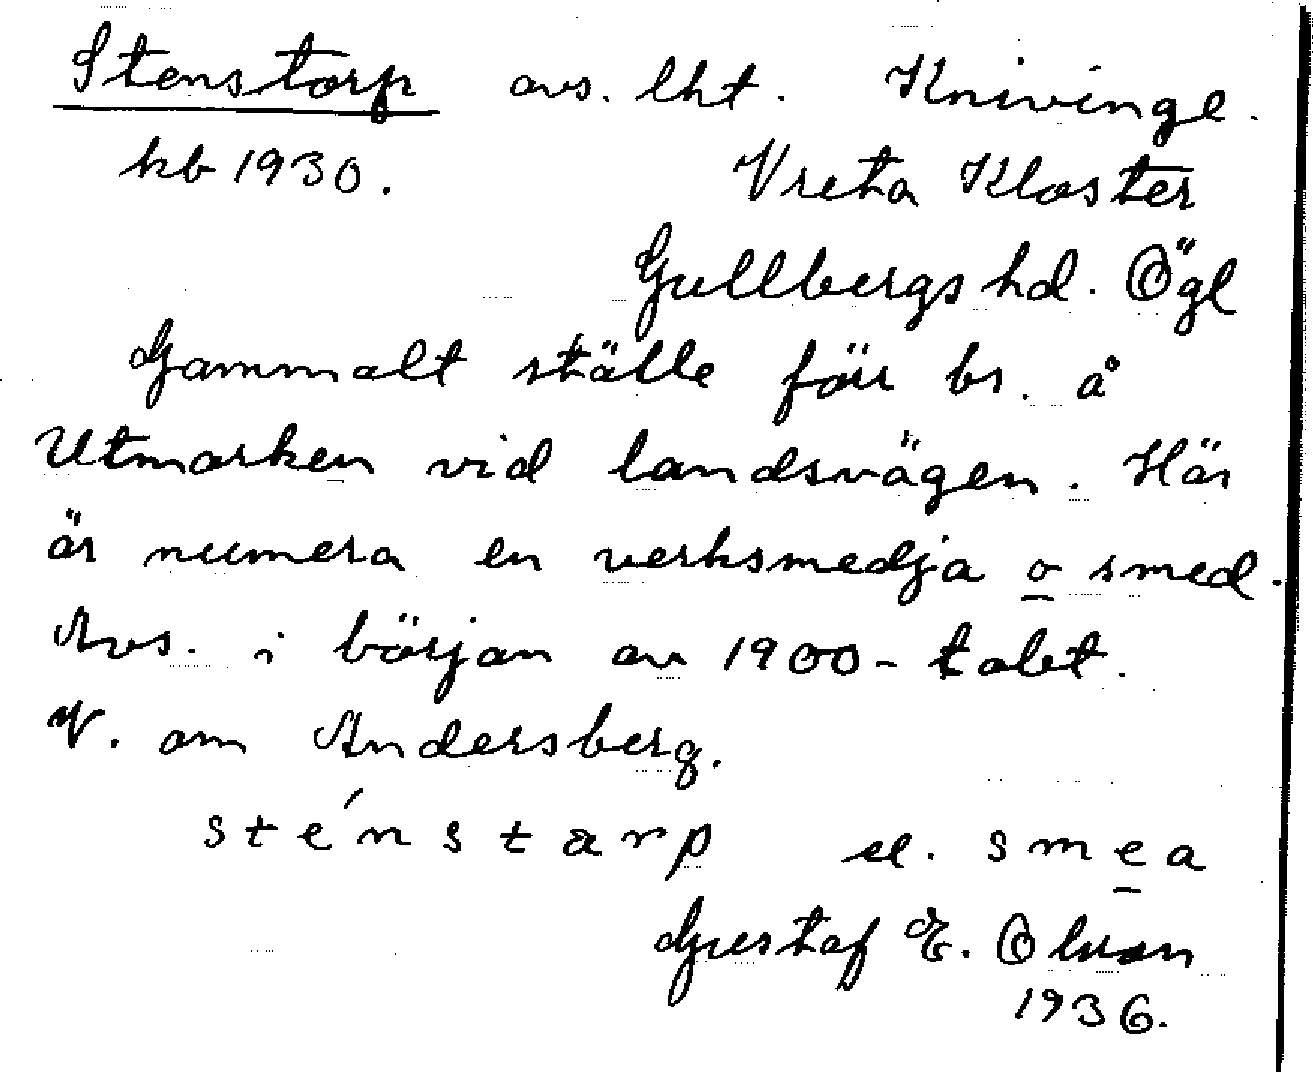 Stenstorp avs. lht. Knivinge.
kb 1930. Vreta Kloster
Gullbergs hd. Ögl
Gammalt ställe för bs. å
Utmarken vid landsvägen. Här
är numera en verksmedja o smed.
Avs. i början av 1900-talet.
V. om Andersberg.
sténstarp el. smea
Gustaf E. Olson
1936.